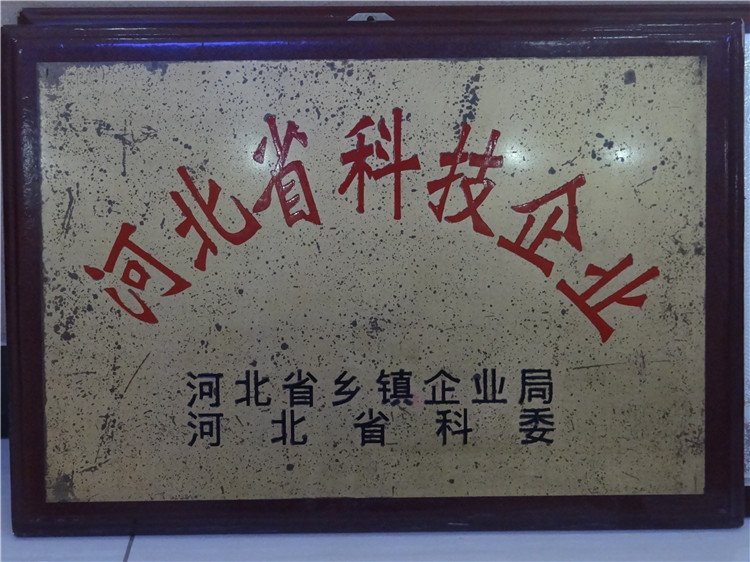 河北省科技企业
河北省乡镇企业局
河北省科委